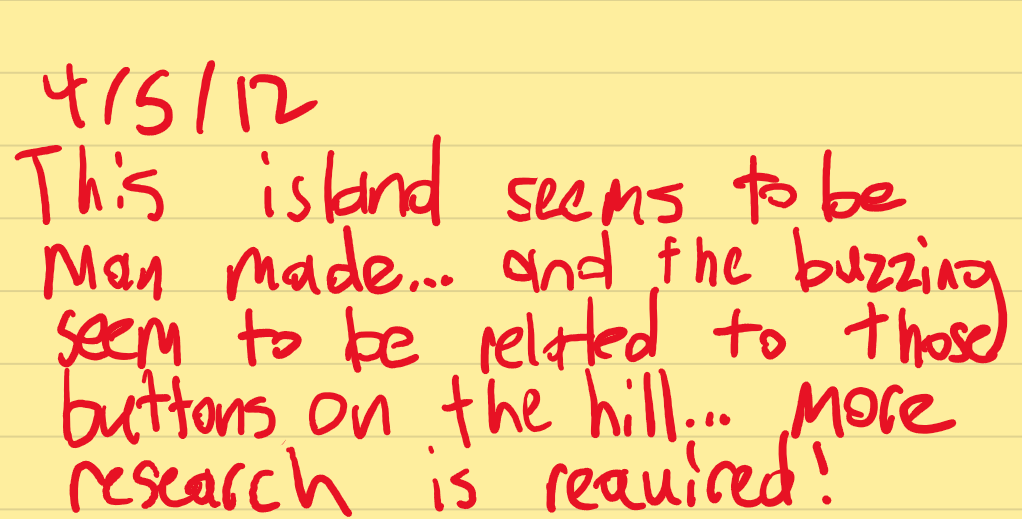 4/5/12
This island seems to be
man made... and the buzzing
seem to be related to those
buttons on the hill... More
research is required!